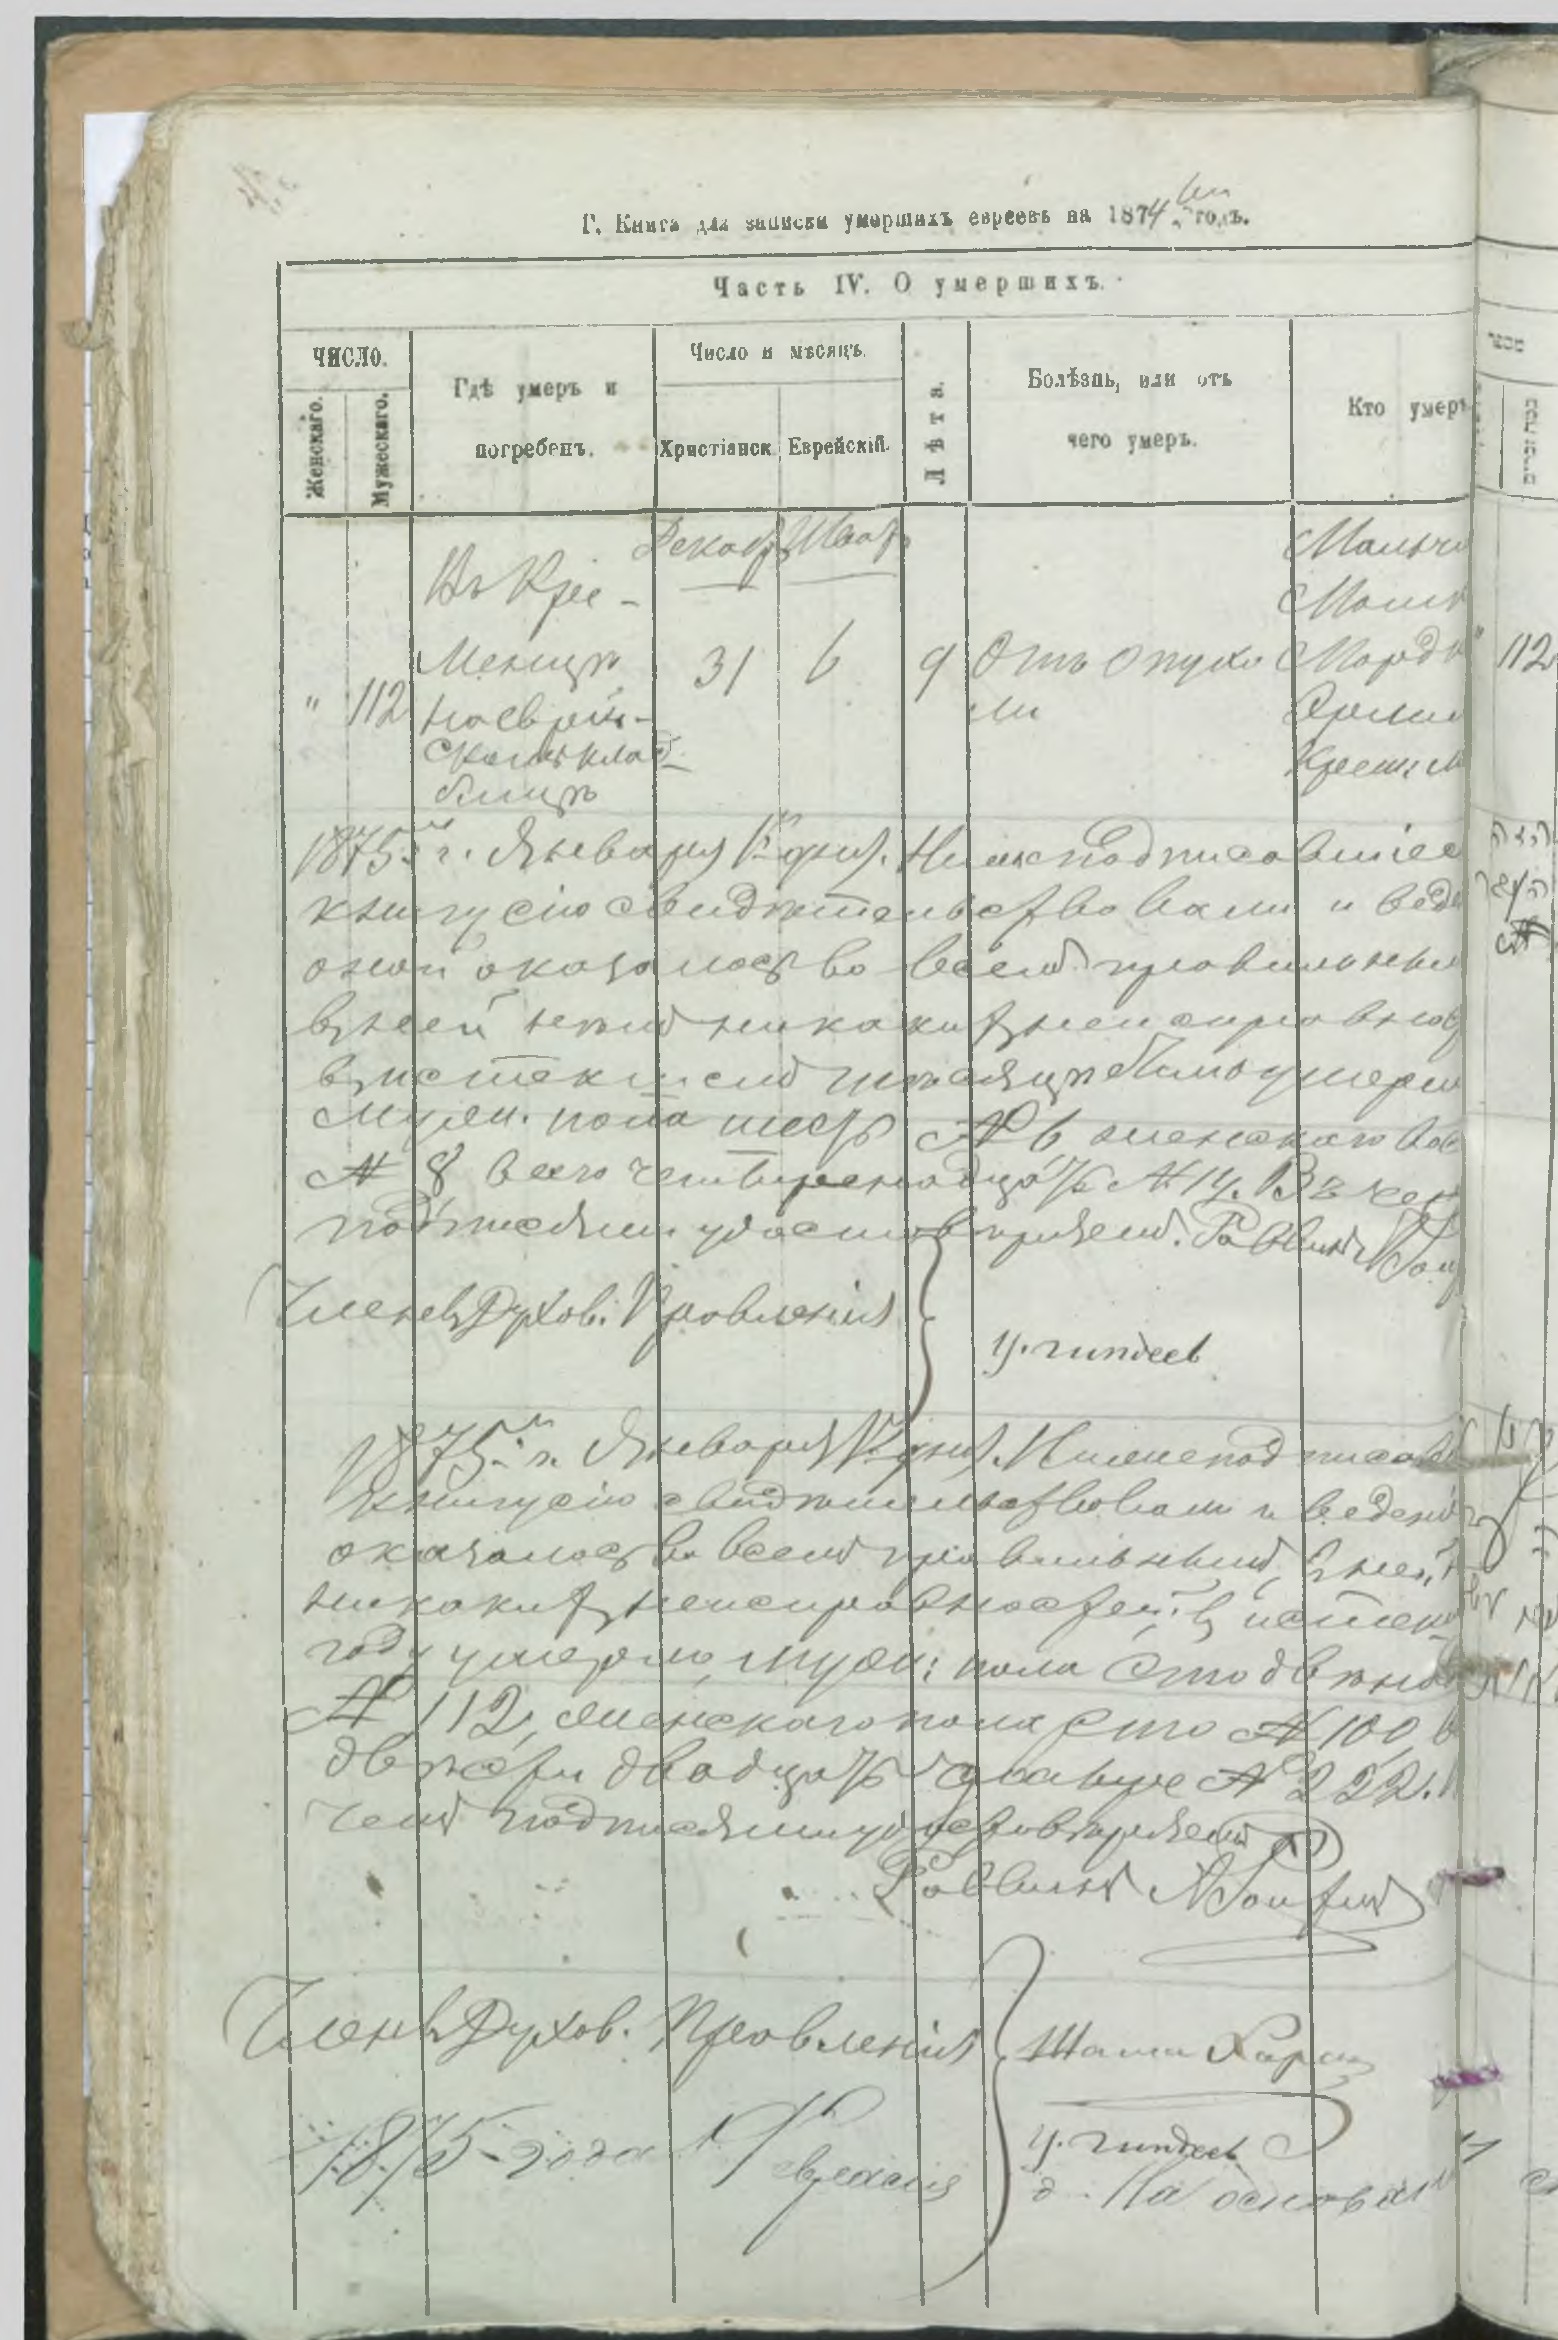 Г. Книга для записи умершихъ евреевъ на 1874 годъ.
Часть IV. О умершихъ.
ЧИСЛО.
Женскаго.
Мужескаго.
Гдѣ умеръ и
погребенъ.
Число и мѣсяцъ.
Христіанск.
Еврейскій.
Лѣта.
Болѣзнь, или отъ
чего умеръ.
Кто умеръ
" 112
Въ Кре-
менцѣ
на еврей-
скомъ клад-
бищѣ
Декабр
31
6
9
Отъ опухо
ли
Мордк
" 112
1875 г. Января 1 дня. Нижеподписавшіес
книгу сію свидѣтельствовали и веде
оной оказалось во всемъ правильнымъ
въ ней нѣтъ никакихъ неисправност
въ истекшемъ мѣсяцѣ было умерш
муж. пола шесть № 6 женскаго вос
№ 8 всего четырнадцать № 14. Въ чем
подписями удостовѣряемъ. Раввинъ
Членъ Духов. Правленія
1875 г. Января 1 дня. Нижеподписав
книгу сію свидѣтельствовали и веден
оказалось во всемъ правильнымъ, въ ней
никакихъ неисправностей, въ истек
году умерло, муж: пола сто двѣнад
№ 112, женскаго пола сто № 100, в
двѣсти двадцать № 222.
чемъ подписями удостовѣряемъ
Раввинъ
Членъ Духов. Правленія
1875 года
На основан